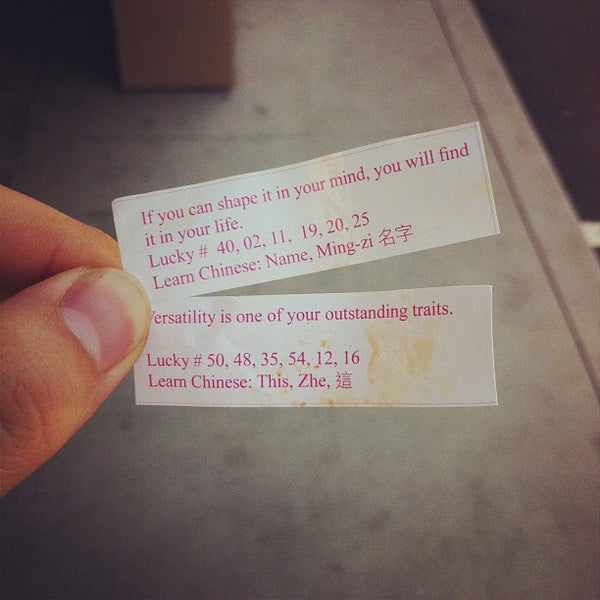 If you can shape it in your mind, you will find
it in your life.
Lucky # 40, 02, 11, 19, 20, 25
Learn Chinese: Name, Ming-zi 名字
Versatility is one of your outstanding traits.
Lucky # 50, 48, 35, 54, 12, 16
Learn Chinese: This, Zhe, 這